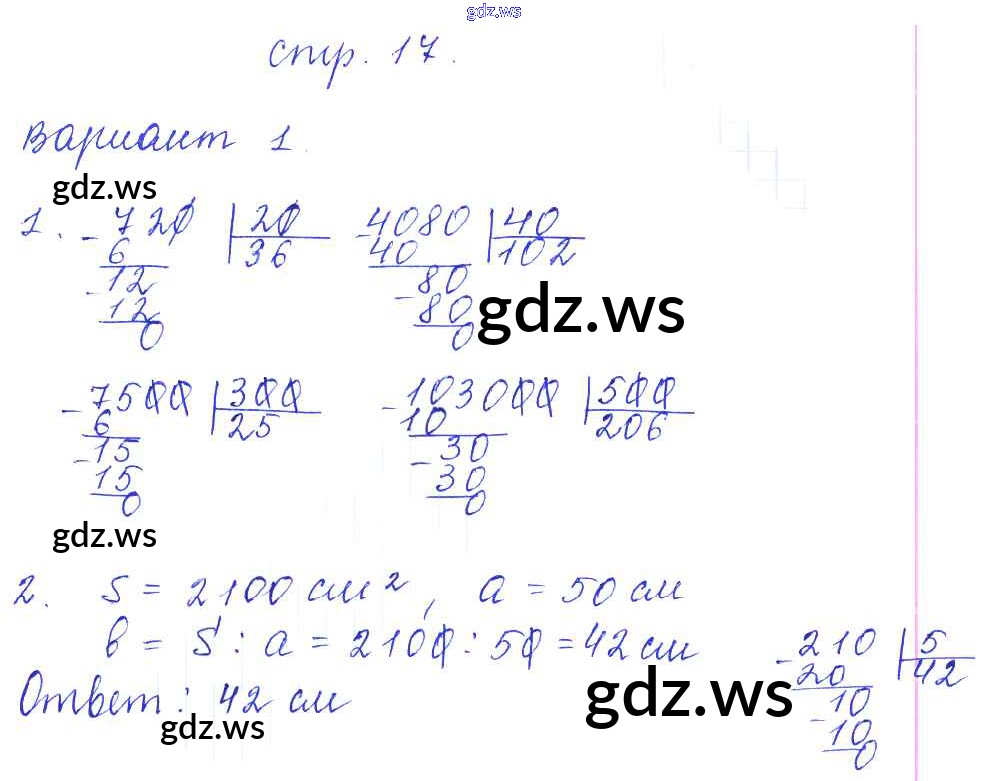 gdz.ws
стр. 17.
Вариант 1.
gdz.ws
1. - 720 | 20 - 4080 | 40
6 36 40 102
- 12 - 80
12 80 gdz.ws
0 0
- 7500 | 300 - 103000 | 500
6 25 10 206
- 15 - 30
15 30
0 0
gdz.ws
2. S = 2100 см², a = 50 см
b = S : a = 2100 : 50 = 42 см - 210 | 5
20 42
Ответ: 42 см gdz.ws - 10
gdz.ws 10
0